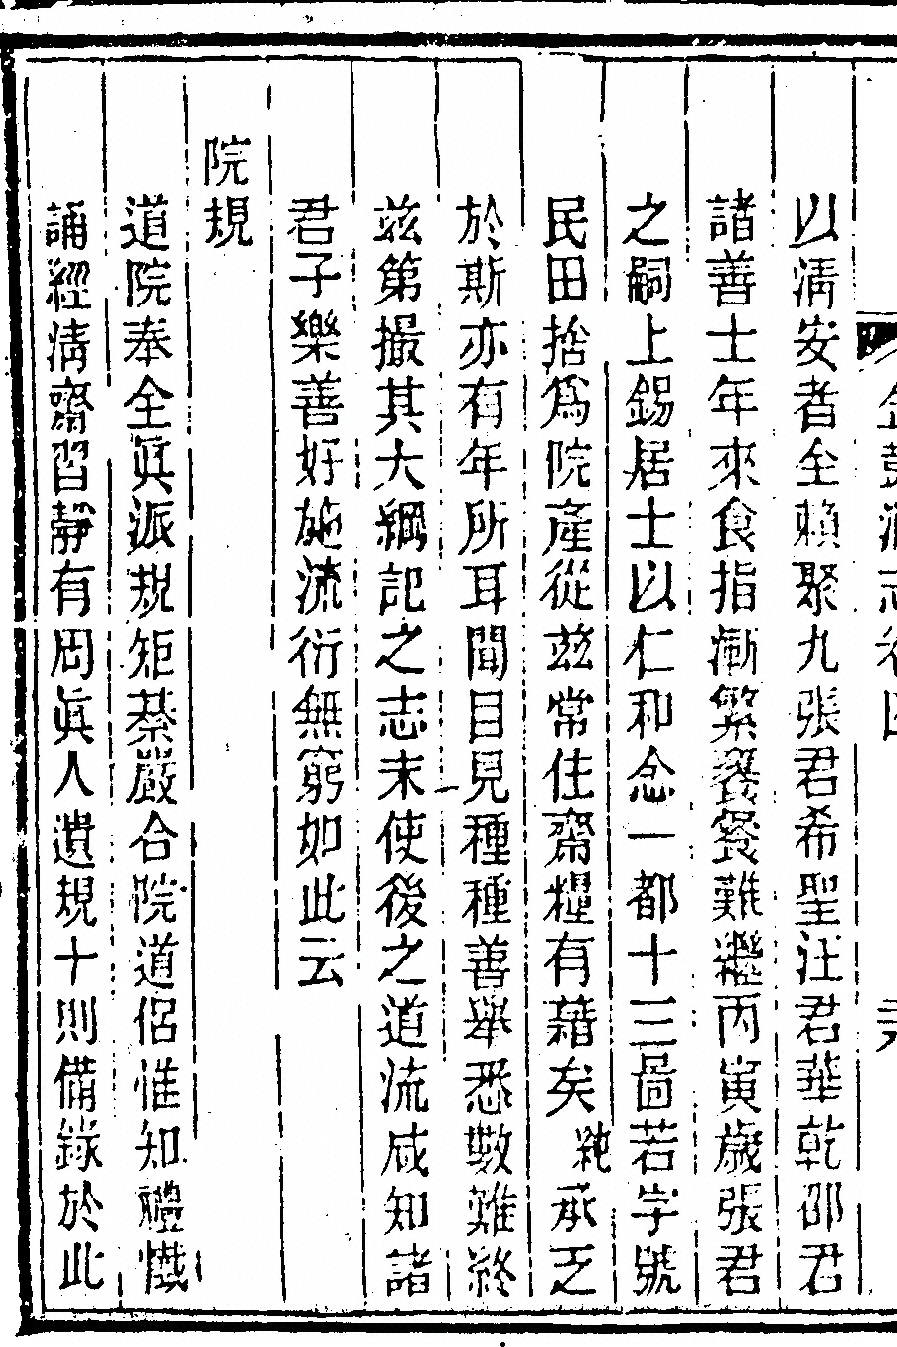 以淸安者全賴聚九張君希聖汪君華乾邵君
諸善士年來食指漸繁饔餐難繼丙寅歲張君
之嗣上錫居士以仁和念一都十三啚若字號
民田捨爲院產從茲常住齋糧有藉矣純承乏
於斯亦有年所耳聞目見種種善舉悉數難終
茲第撮其大綱記之志末使後之道流咸知諸
君子樂善好施流衍無窮如此云
院規
道院奉全眞派規矩綦嚴合院道侶惟知禮懺
誦經淸齋習靜有周眞人遺規十則備錄於此